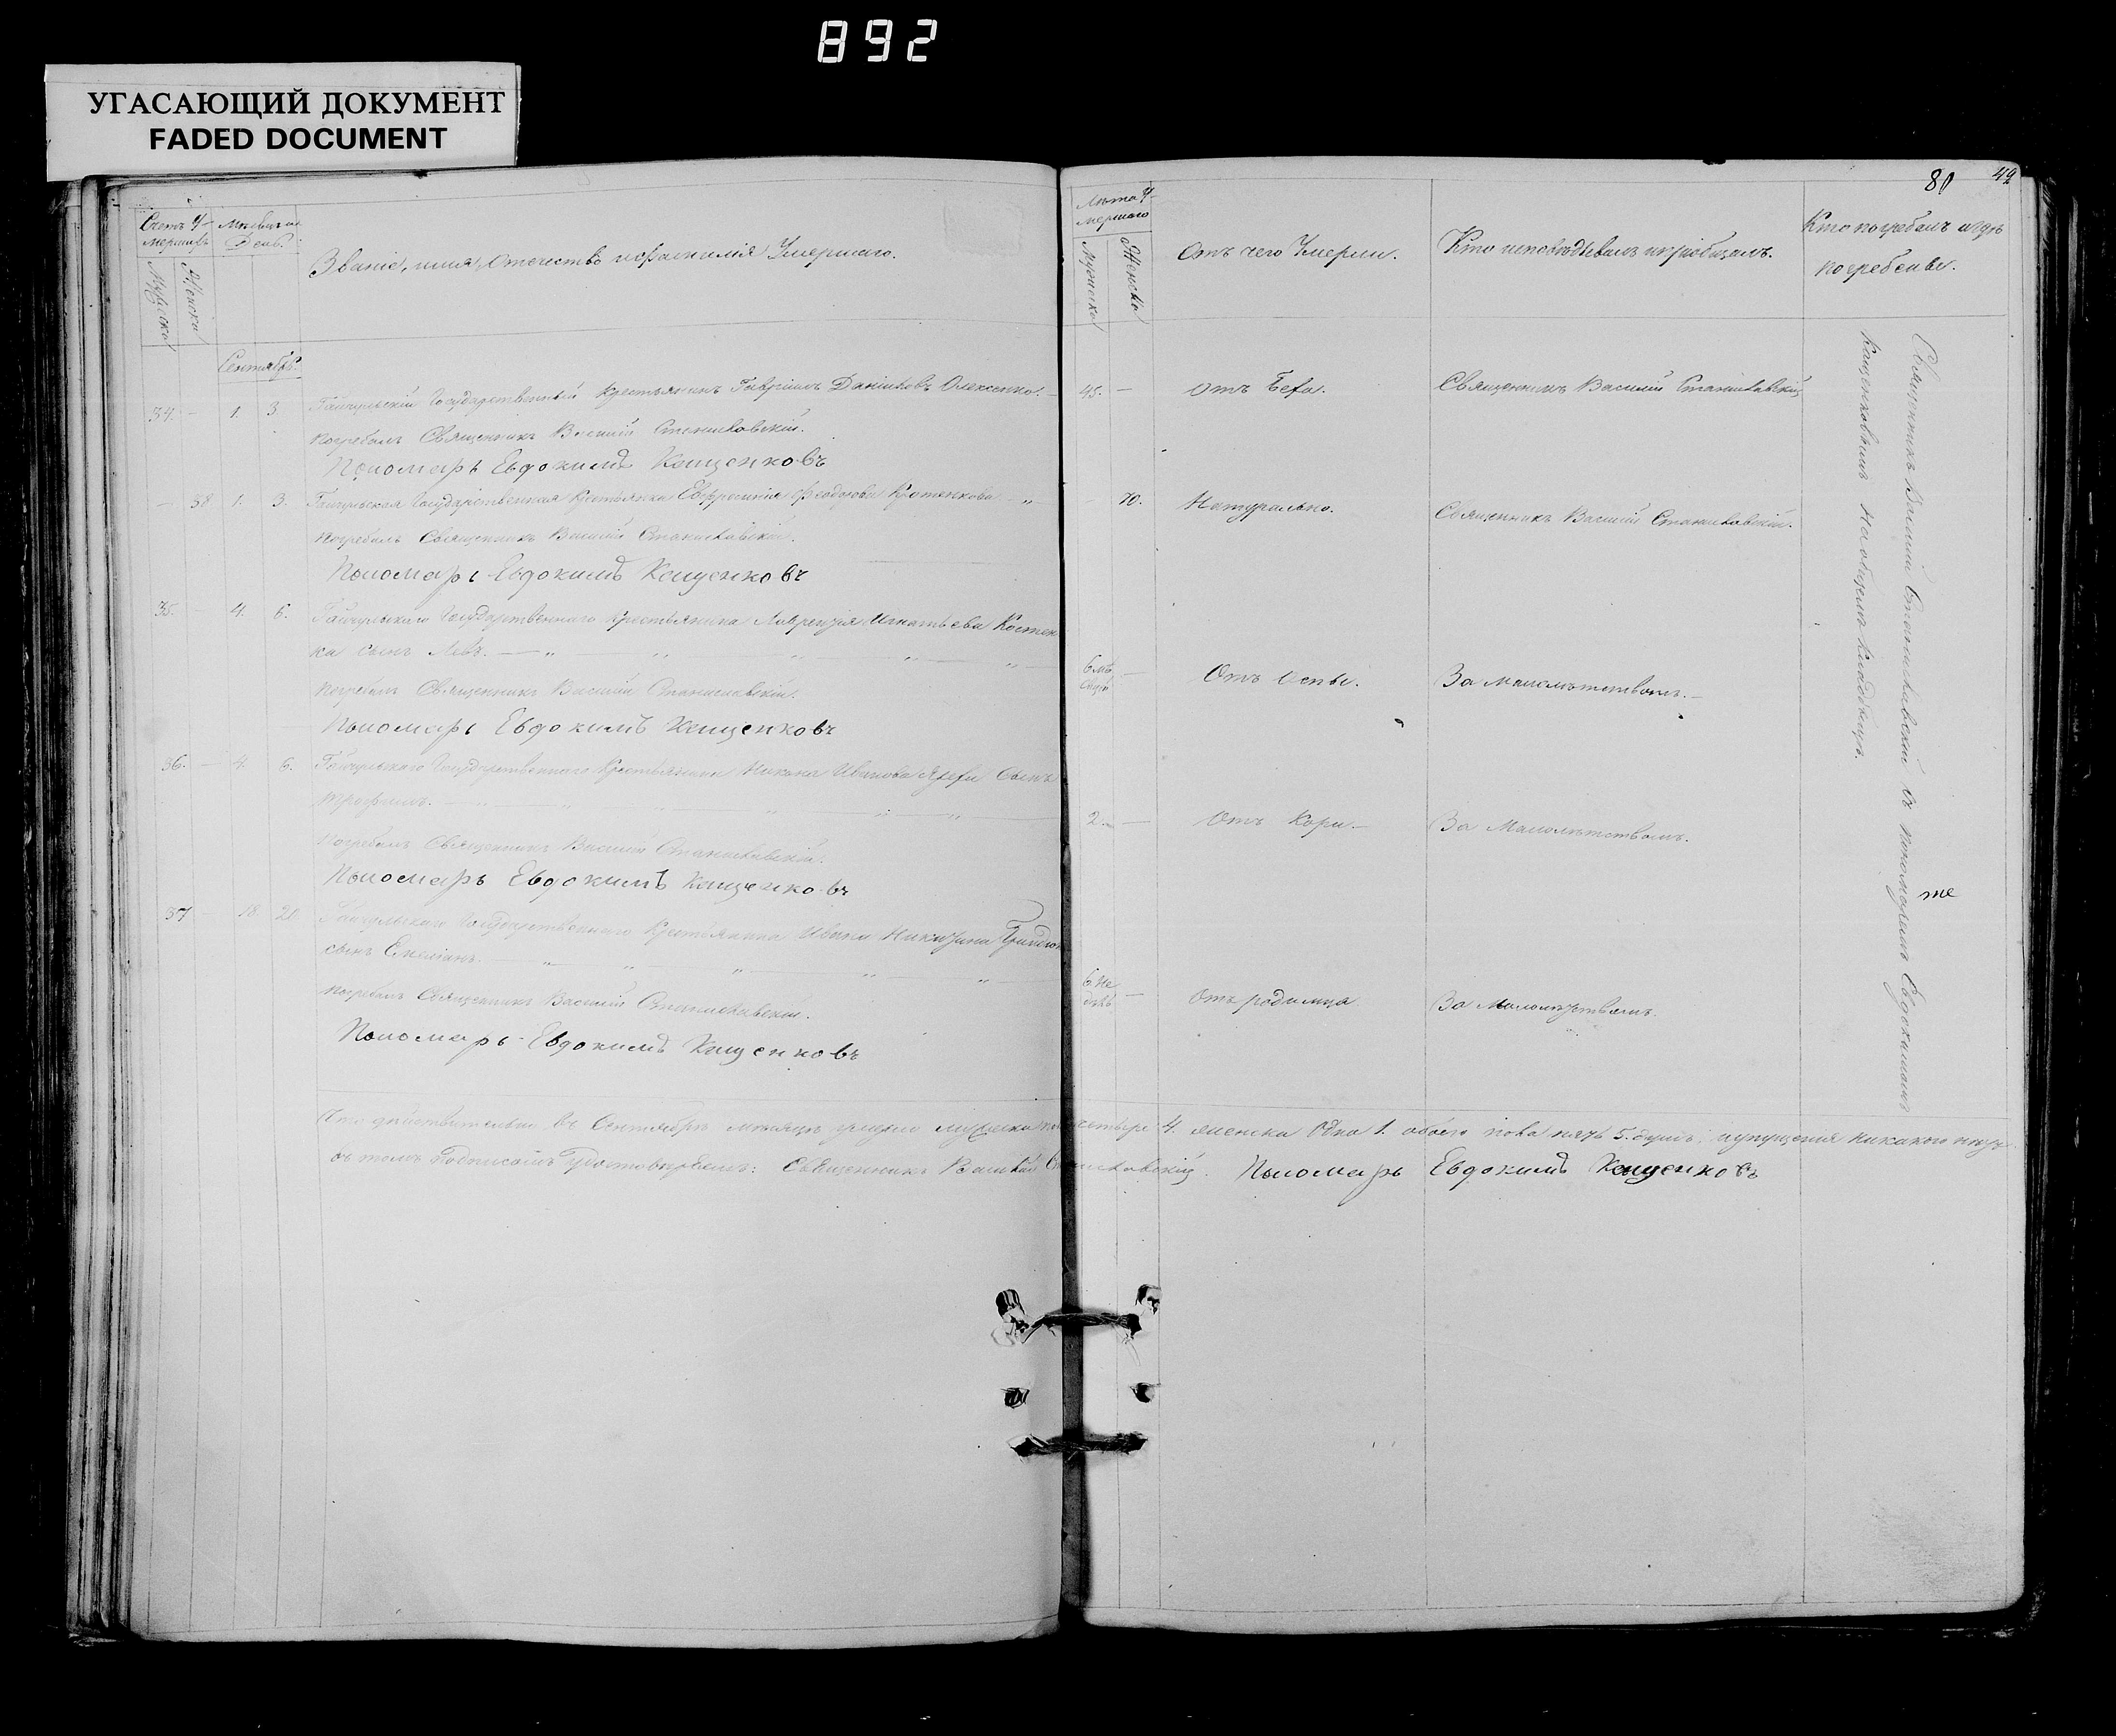 892
УГАСАЮЩИЙ ДОКУМЕНТ
FADED DOCUMENT
80 49
Счетъ У-
мершихъ
Мужеска
Женска
Мѣсяцъ и
День.
Званіе, имя, Отечество и фамилія Умершаго.
Лѣта У-
мершаго
Мужеска
Женска
Отъ чего Умерли.
Кто исповѣдывалъ и пріобщалъ.
Кто погребалъ и гдѣ
погребены.
Сентябрь.
34. — 1. 3. Гайчульскій Государственный Крестьянинъ Гавріилъ Даниловъ Олексенко.
45. — Отъ Священникъ Василій Станиславскій
погребалъ Священникъ Василій Станиславскій.
Пономарь Евдокимъ Кащенковъ
— 38 1. 3. Гайчульская Государственная Крестьянка Евфросинія Феодорова
— 70. Натурально. Священникъ Василій Станиславскій.
погребалъ Священникъ Василій Станиславскій.
Пономарь Евдокимъ Кащенковъ
35. — 4. 6. Гайчульскаго Государственнаго Крестьянина Лаврентія Игнатьева Костен
ка сынъ Левъ. — „ „ „ „ „
6 мѣ — Отъ Оспы. За малолѣтствомъ. —
погребалъ Священникъ Василій Станиславскій.
Пономарь Евдокимъ Кащенковъ
36. — 4. 6. Гайчульскаго Государственнаго Крестьянина Никона Иванова Сынъ
Трофимъ. — „ „ „ „ „ „
2. — Отъ Кори. — За Малолѣтствомъ.
погребалъ Священникъ Василій Станиславскій.
Пономарь Евдокимъ Кащенковъ
37 — 18 20 Гайчульскаго Государственнаго Крестьянина Ивана Никитина
сынъ Емеліанъ. — „ „ „ „ „
6 не
дѣль — Отъ родимца За Малолѣтствомъ.
погребалъ Священникъ Василій Станиславскій.
Пономарь Евдокимъ Кащенковъ
Священникъ Василій Станиславскій съ пономаремъ Евдокимомъ
Кащенковымъ На общемъ кладбищѣ.
же
Что дѣйствительно въ Сентябрѣ мѣсяцѣ умерло мужеска четыре 4. женска Одна 1. обоего пола пять 5. душъ. и упущенія никакого
въ томъ Подписомъ Удостовѣряемъ: Священникъ Василій Станиславскій. Пономарь Евдокимъ Кащенковъ